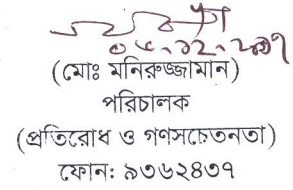 ০৫.১২.২০১৭
(মোঃ মনিরুজ্জামান)
পরিচালক
(প্রতিরোধ ও গণসচেতনতা)
ফোন: ৯৩৬২৪৩৭